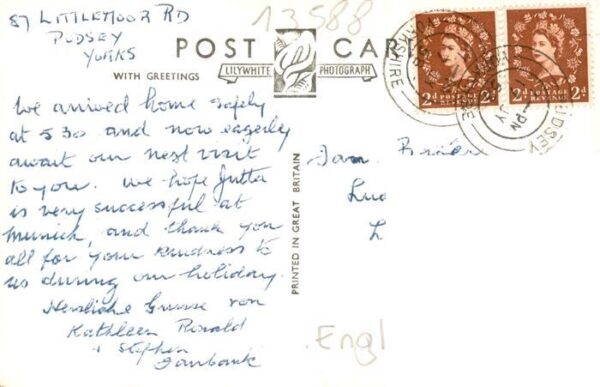 87 LITTLEMOOR RD
PUDSEY
YORKS
13588
POST CARD
WITH GREETINGS
LILYWHITE PHOTOGRAPH
We arrived home safely
at 5 30 and now eagerly
await our next visit
to you. We hope Jutta
is very successful at
Munich, and thank you
all for your kindness to
us during our holiday.
Herzliche Grusse von
Kathleen Ronald
+ Stephen
Fairbank
PRINTED IN GREAT BRITAIN
Fam.
L
Engl
2d POSTAGE REVENUE 2d
2d POSTAGE REVENUE 2d
PUDSEY